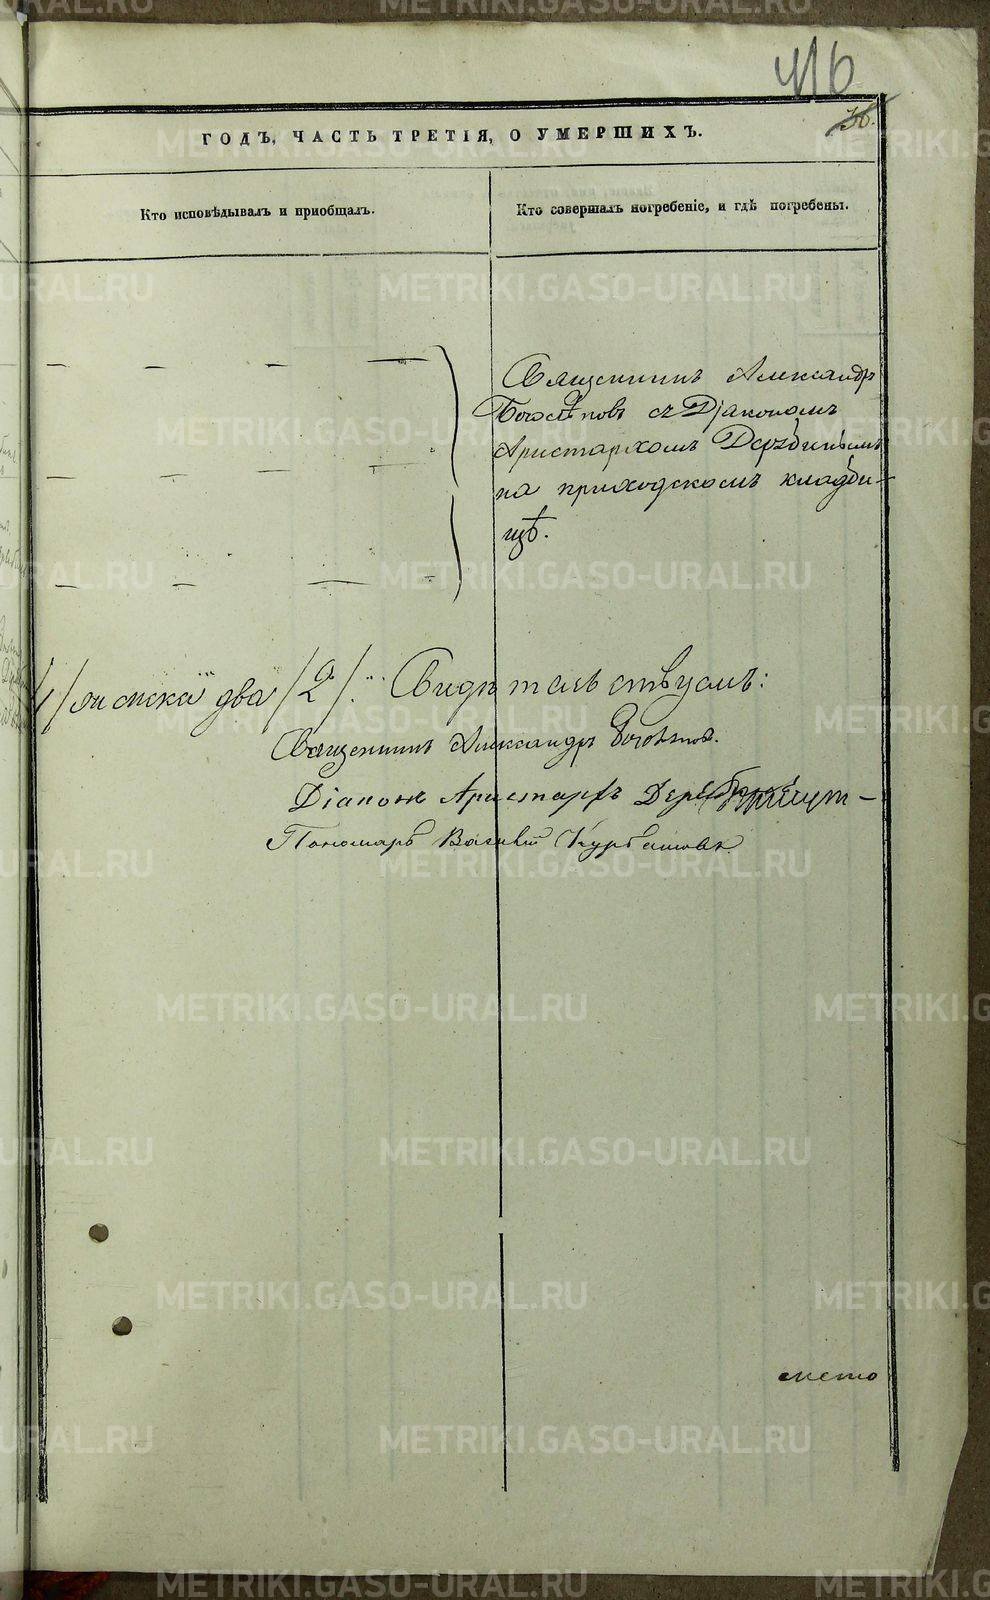 416
36.
ГОДЪ, ЧАСТЬ ТРЕТІЯ, О УМЕРШИХЪ.
Кто исповѣдывалъ и пріобщалъ.
Кто совершалъ погребеніе, и гдѣ погребены.
Священникъ Александръ
съ Діакономъ
Аристархомъ
на приходскомъ кладби-
щѣ.
женска два /2/. Свидѣтельствуемъ:
Священникъ Александръ
Діаконъ Аристархъ
Пономарь Василій Курбатовъ
METRIKI.GASO-URAL.RU